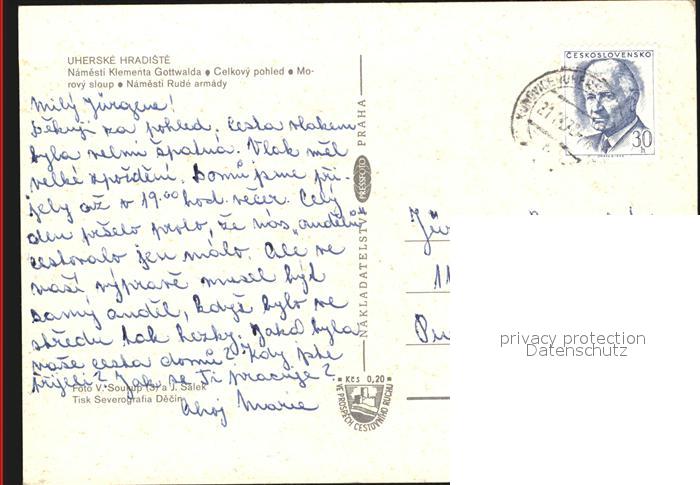 UHERSKÉ HRADIŠTĚ
Náměstí Klementa Gottwalda ● Celkový pohled ● Mo-
rový sloup ● Náměstí Rudé armády
Milý Jürgene!
Děkuji za pohled, cesta vlakem
byla velmi špatná. Vlak měl
velké zpoždění. Domů jsme při-
jely až v 19.00 hod. večer. Celý
den pršelo proto, že nás „andělů
cestovalo jen málo. Ale ve
vaší výpravě musel být
samý anděl, když bylo ve
středu tak hezky. Jaká byla
vaše cesta domů? Kdy jste
přijeli? Jak se Ti pracuje?
Ahoj Marie
Foto V. Soukup (3) a J. Sálek
Tisk Severografia Děčín
NAKLADATELSTVÍ PRESSFOTO PRAHA
Kčs 0,20
VE PROSPĚCH CESTOVNÍHO RUCHU
ČESKOSLOVENSKO
30
h
Jür
11
privacy protection
Datenschutz